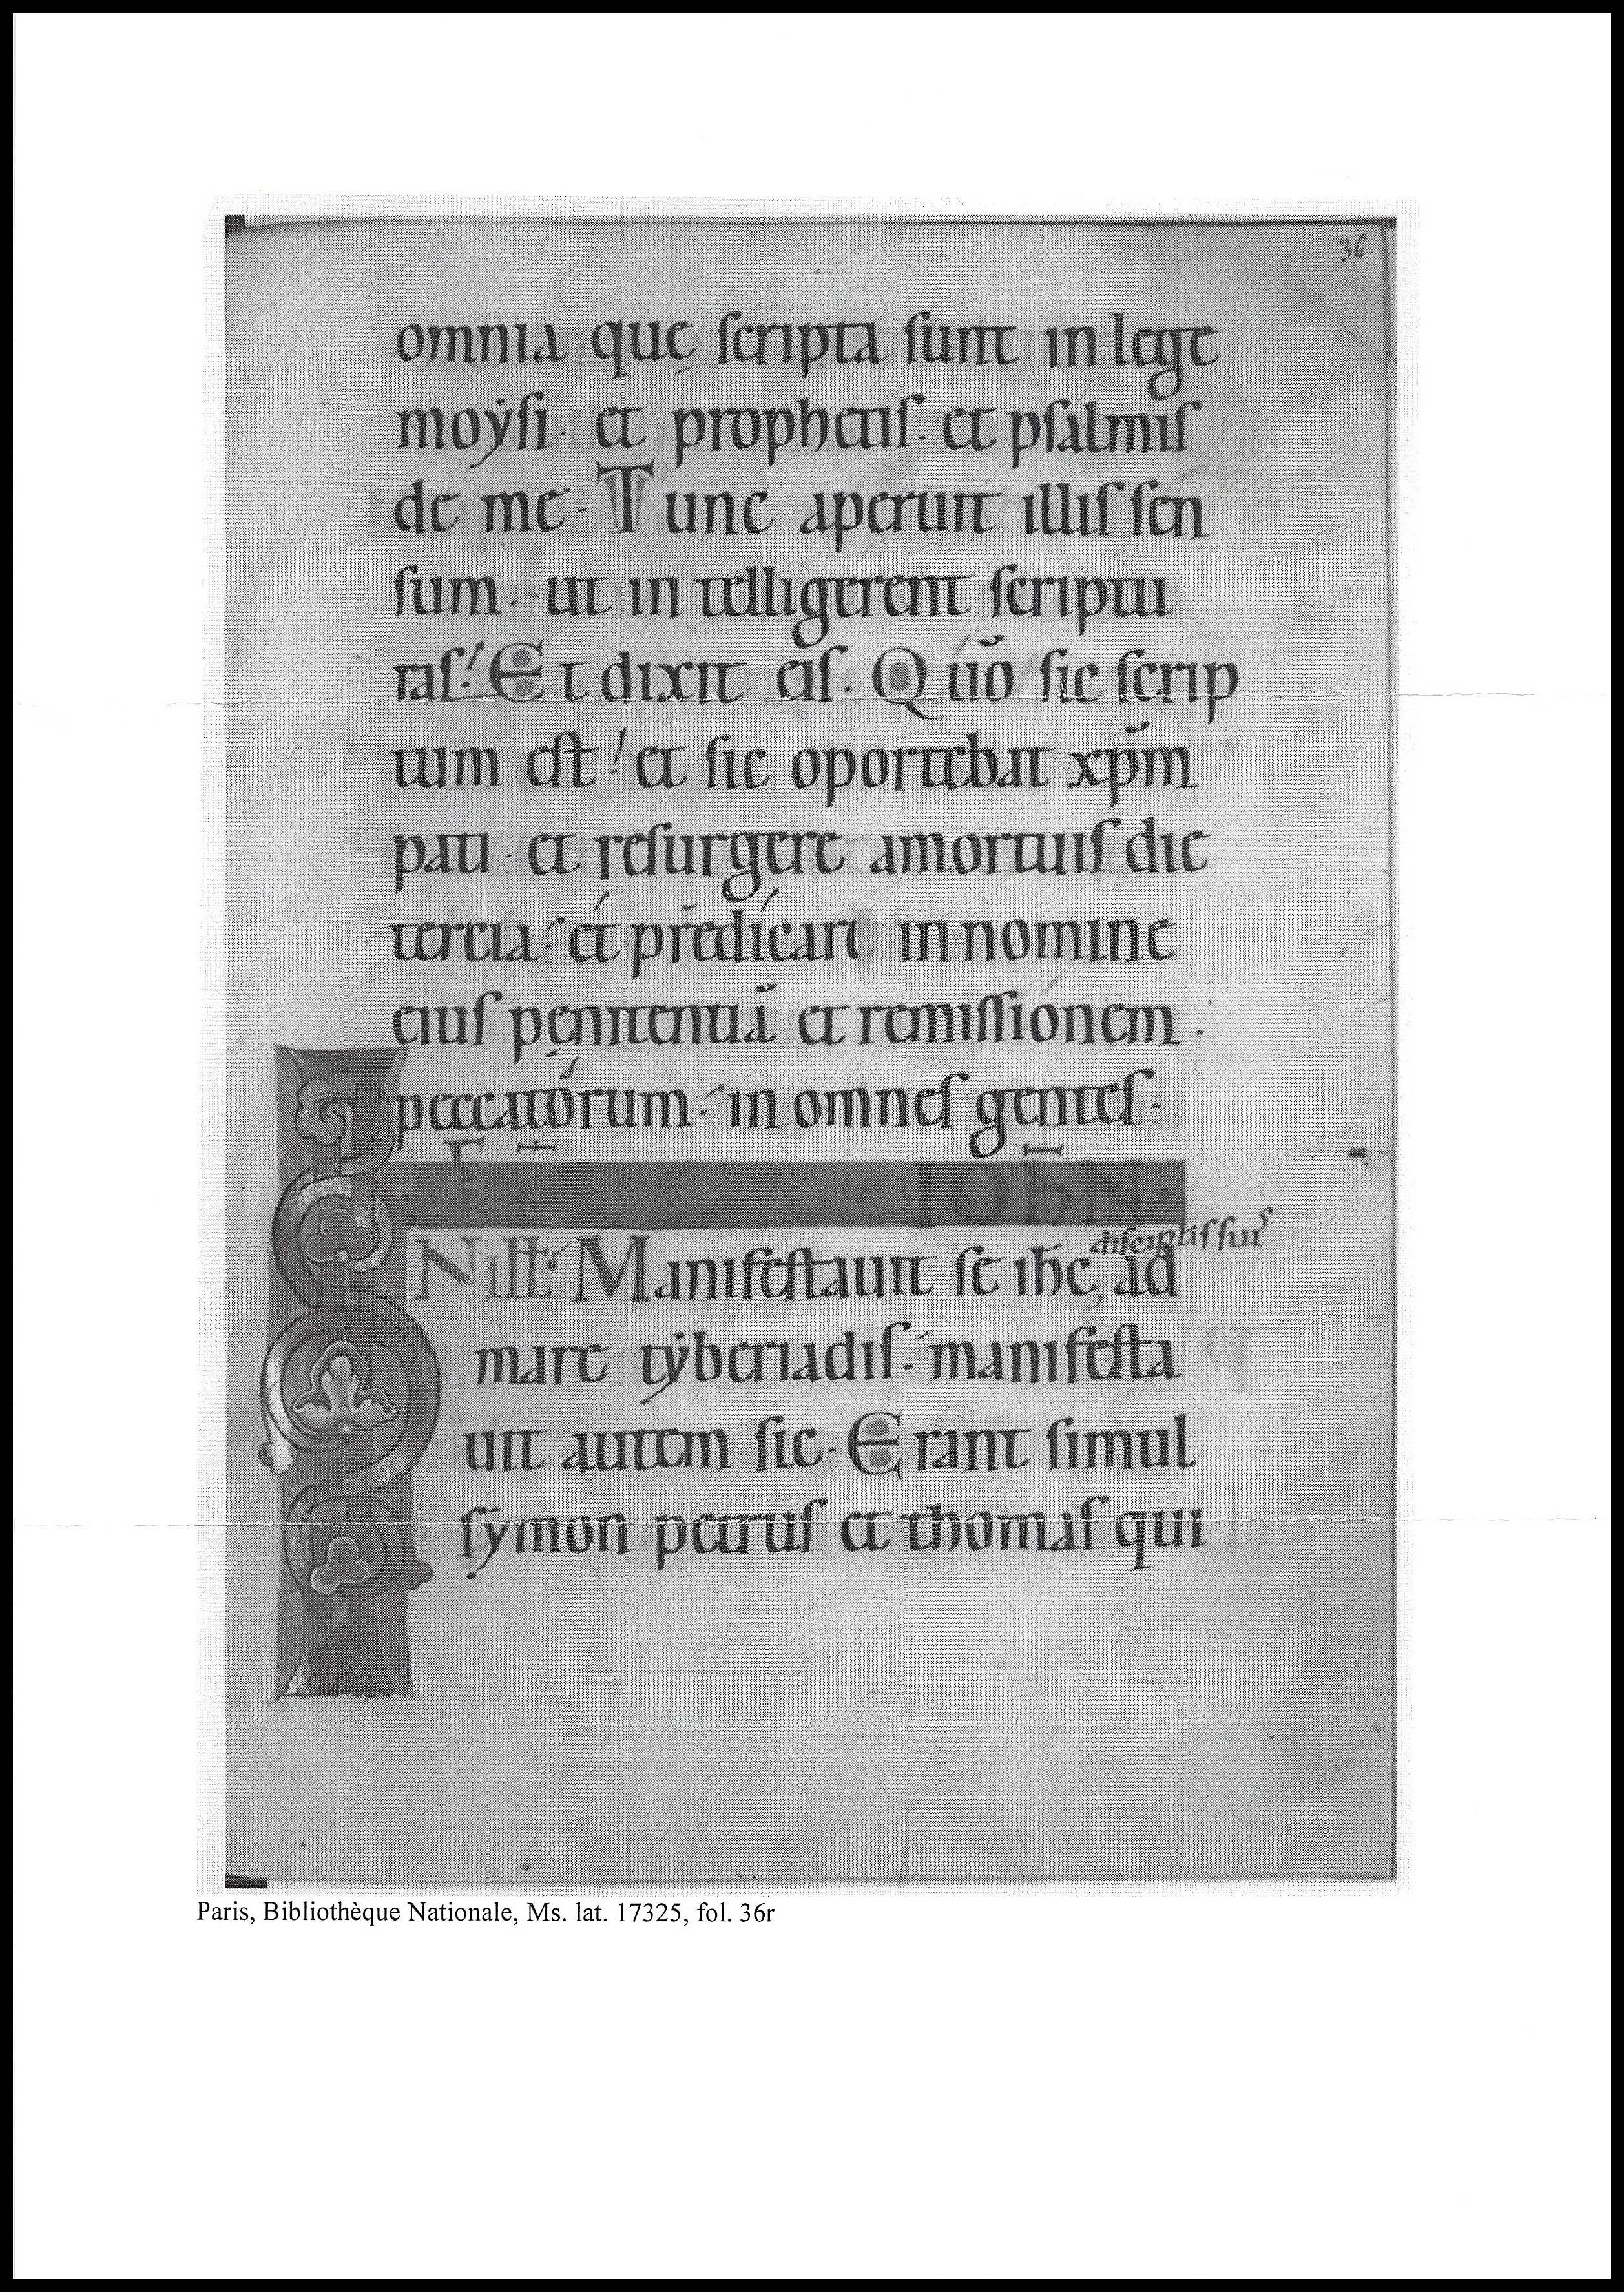 36
omnia quę ſcripta ſunt in lege
moẏſi · et prophetiſ · et pſalmiſ
de me · Tunc aperuit illiſ ſen
ſum · ut intelligerent ſcriptu
raſ · Et dixit eiſ · Quō ſic ſcrip
tum eſt et ſic oportebat xp̄m
pati · et reſurgere amortuiſ die
tercia · et p̄redicari in nomine
eiuſ pęnitentiā et remiſſionem ·
peccatorum · in omneſ genteſ ·
IOhN
N ill̄ · Manifeſtauit ſe ih̄c, ad
diſcipliſ ſuiſ
mare tẏberiadiſ · manifeſta
uit autem ſic · Erant ſimul
ſẏmon petruſ et thomaſ qui
Paris, Bibliothèque Nationale, Ms. lat. 17325, fol. 36r